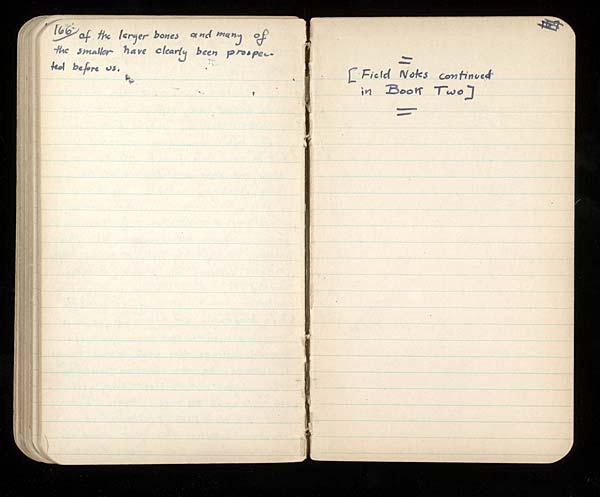 166
of the larger bones and many of
the smaller have clearly been prospec-
ted before us.
[Field Notes continued
in Book Two]